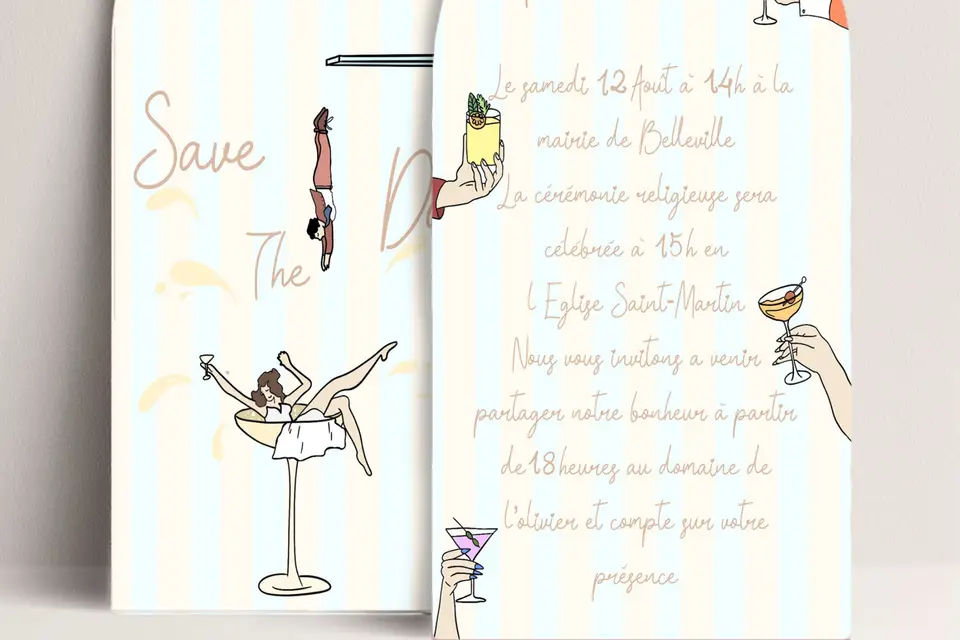 Save
The
Le samedi 12 Août à 14h à la
mairie de Belleville
La cérémonie religieuse sera
célébrée à 15h en
l Eglise Saint-Martin
Nous vous invitons a venir
partager notre bonheur à partir
de 18 heures au domaine de
l'olivier et compte sur votre
présence